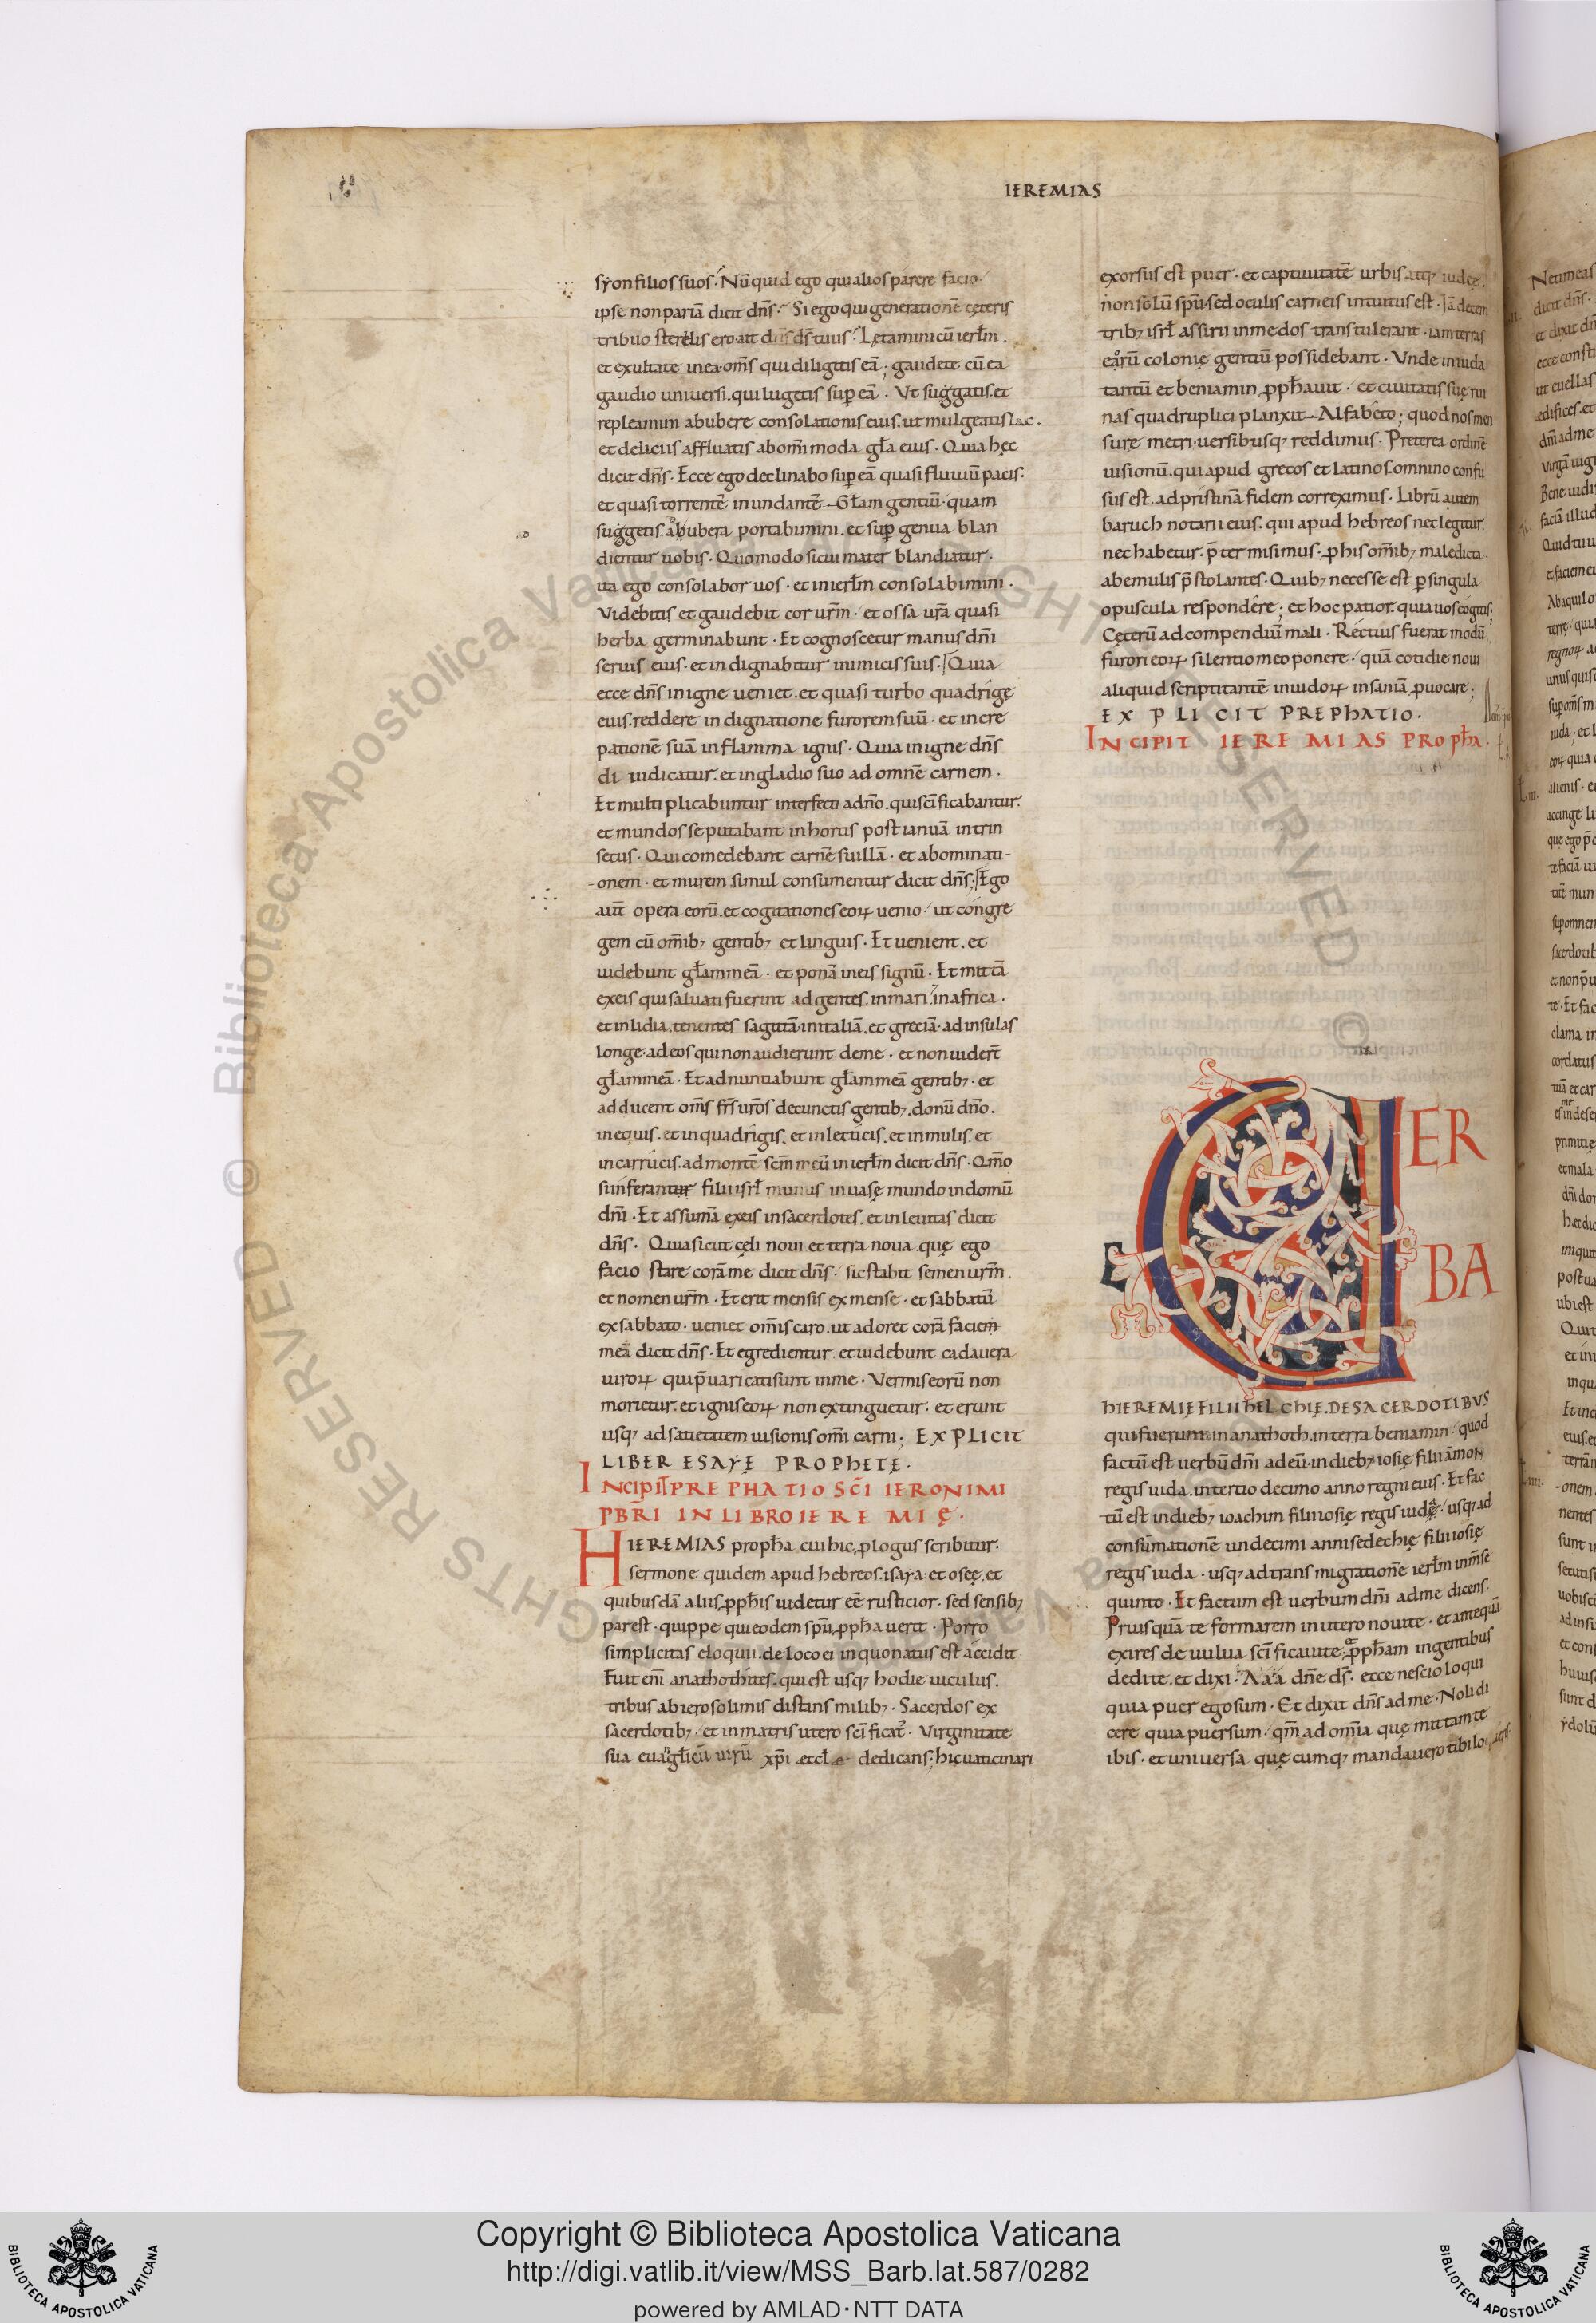 IEREMIAS
syon filios suos. Nūquid ego qui alios parere facio
ipse non pariā dicit dñs. Si ego qui generationē cęteris
tribuo sterelis ero ait dñs ds̄ tuus. Lętamini cū ierl̄m.
et exultate in ea om̄s qui diligitis eā; gaudete cū ea
gaudio universi. qui lugetis sup̄ eā. Ut suggatis. et
repleamini ab ubere consolationis eius. ut mulgeatis lac.
et deliciis affluatis ab om̄imoda gl̄a eius. Quia hęc
dicit dñs. Ecce ego declinabo sup̄ eā quasi fluviū pacis.
et quasi torrentē inundantē Gl̄am gentiū. quam
suggetis. ad ubera portabimini. et sup̄ genua blan
dientur vobis. Quomodo si cui mater blandiatur.
ita ego consolabor vos. et in ierl̄m consolabimini.
Videbitis et gaudebit cor ur̄m. et ossa ur̄a quasi
herba germinabunt. Et cognoscetur manus dñi
servis eius. et indignabitur inimicis suis. Quia
ecce dñs in igne veniet. et quasi turbo quadrigę
eius. reddere in dignatione furorem suū. et incre
pationē suā in flamma ignis. Quia in igne dñs
di iudicatur. et in gladio suo ad omnē carnem.
Et multiplicabuntur interfecti a dño. qui scīficabantur.
et mundos se putabant in hortis post ianuā intrin
secus. Qui comedebant carnē suillā. et abominati-
-onem. et murem. simul consumentur dicit dñs; Ego
aut̄ opera eorū. et cogitationes eoꝝ venio. ut congre
gem cū om̄ibꝫ gentibꝫ et linguis. Et venient. et
videbunt gl̄am meā. et ponā in eis signū. Et mittā
ex eis qui salvati fuerint ad gentes. in mari. in africa.
et in lidia. tenentes sagittā. in italiā. et greciā. ad insulas
longe. ad eos qui non audierunt de me. et non vider̄t
gl̄am meā. Et adnuntiabunt gl̄am meā gentibꝫ. et
adducent om̄s fr̄s ur̄os de cunctis gentibꝫ. donū dño.
in equis. et in quadrigis. et in lecticis. et in mulis. et
in carrucis. ad montē scm̄ meū in ierl̄m dicit dñs. Qm̄o
si inferantur filii isrl̄ munus in vasę mundo in domū
dñi. Et assumā ex eis in sacerdotes. et in levitas dicit
dñs. Quia sicut cęli novi et terra nova. quę ego
facio stare corā me dicit dñs. sic stabit semen ur̄m.
et nomen ur̄m. Et erit mensis ex mense. et sabbatū
ex sabbato. veniet om̄is caro. ut adoret corā faciem
meā dicit dñs. Et egredientur. et videbunt cadavera
viroꝝ qui p̄varicati sunt in me. Vermis eorū non
morietur. et ignis eoꝝ non extinguetur. et erunt
usqꝫ ad satietatem visionis om̄i carni; EXPLICIT
LIBER ESAYĘ PROPHETĘ.
INCIPIT PREPHATIO SC̄I IERONIMI
PB̄RI IN LIBRO IEREMIĘ.
HIEREMIAS proph̄a cui hic ꝓlogus scribitur.
sermone quidem apud hebreos. isaya. et oseę. et
quibusdā aliis ꝓph̄is videtur eē rusticior. sed sensibꝫ
par est. quippe qui eodem spū ꝓph̄averit. Porro
simplicitas eloquii. de loco ei in quo natus est accidit.
Fuit eni anathothites. qui est usqꝫ hodie viculus.
tribus ab ierosolimis distans milibꝫ. Sacerdos ex
sacerdotibꝫ. et in matris utero scīficat̄. Virginitate
sua euangl̄icū virū xp̄i eccl̄e dedicans; hic vaticinari
exorsus est puer. et captivitatē urbis atqꝫ iudeę.
non solū spū. sed oculis carneis intuitus est. Iā decem
tribꝫ isrl̄ assirii in medos transtulerant. iam terras
earū colonię gentiū possidebant. Unde in iuda
tantū et beniamin ꝓph̄avit. et civitatis suę rui
nas quadruplici planxit Alfabeto; quod nos men
sure metri. versibusqꝫ reddimus. Preterea ordinē
visionū. qui apud grecos et latinos omnino confu
sus est. ad pristinā fidem correximus. Librū autem
baruch notarii eius. qui apud hebreos nec legitur.
nec habetur. p̄termisimus. ꝓ his om̄ibꝫ maledicta
ab emulis p̄stolantes. Quibꝫ necesse est ꝑ singula
opuscula respondere; et hoc patior. quia vos cogitis;
Cęterū ad compendiū mali. Rectius fuerat modū
furori eoꝝ silentio meo ponere. quā cotidie novi
aliquid scriptitantē invidoꝝ insaniā ꝓvocare;
EXPLICIT PREPHATIO.
INCIPIT IEREMIAS PROPH̄A.
VER
BA
HIEREMIĘ FILII HELCHIĘ. DE SACERDOTIBUS
qui fuerunt in anathoth. in terra beniamin. quod
factū est verbū dñi ad eū. in diebꝫ iosię filii amon
regis iuda. in tertio decimo anno regni eius. Et fac
tū est in diebꝫ ioachim filii iosię regis iudę. usqꝫ ad
consūmationē undecimi anni sedechię filii iosię
regis iuda. usqꝫ ad transmigrationē ierl̄m in m̄se
quinto. Et factum est verbum dñi ad me dicens.
Priusquā te formarem in utero novi te. et antequā
exires de vulva scīficavi te; ꝓph̄am in gentibus
dedi te. et dixi. A a a dñe ds̄. ecce nescio loqui
quia puer ego sum. Et dixit dñs ad me. Noli di
cere quia puer sum. qm̄ ad om̄ia quę mittam te
ibis. et universa quęcumqꝫ mandavero tibi loqueris.
Copyright © Biblioteca Apostolica Vaticana
http://digi.vatlib.it/view/MSS_Barb.lat.587/0282
powered by AMLAD·NTT DATA
BIBLIOTECA APOSTOLICA VATICANA
BIBLIOTECA APOSTOLICA VATICANA
© Biblioteca Apostolica Vaticana ALL RIGHTS RESERVED